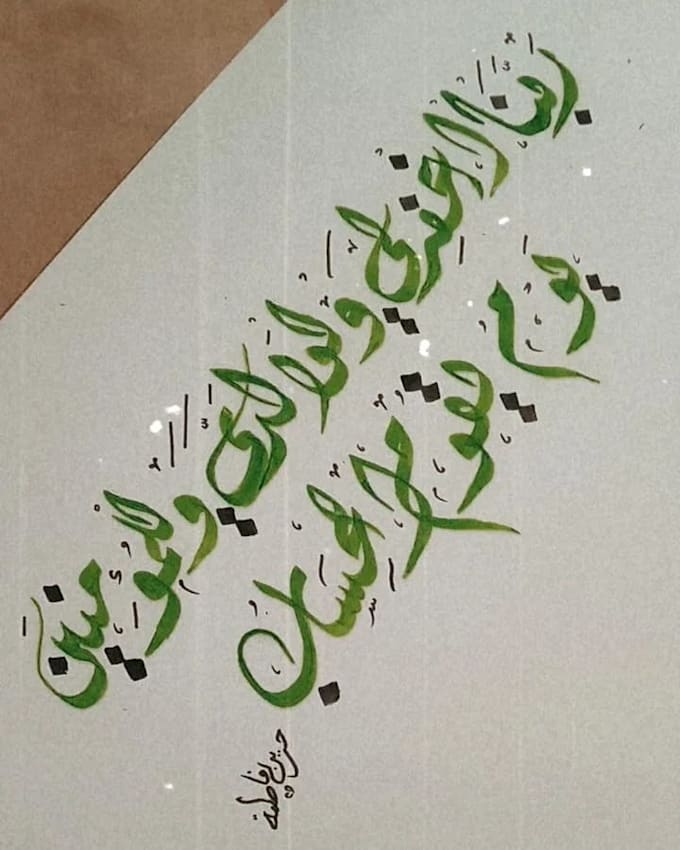 ربنا اغفر لي ولوالدي وللمؤمنين
يوم يقوم الحساب
حرین فاطمة